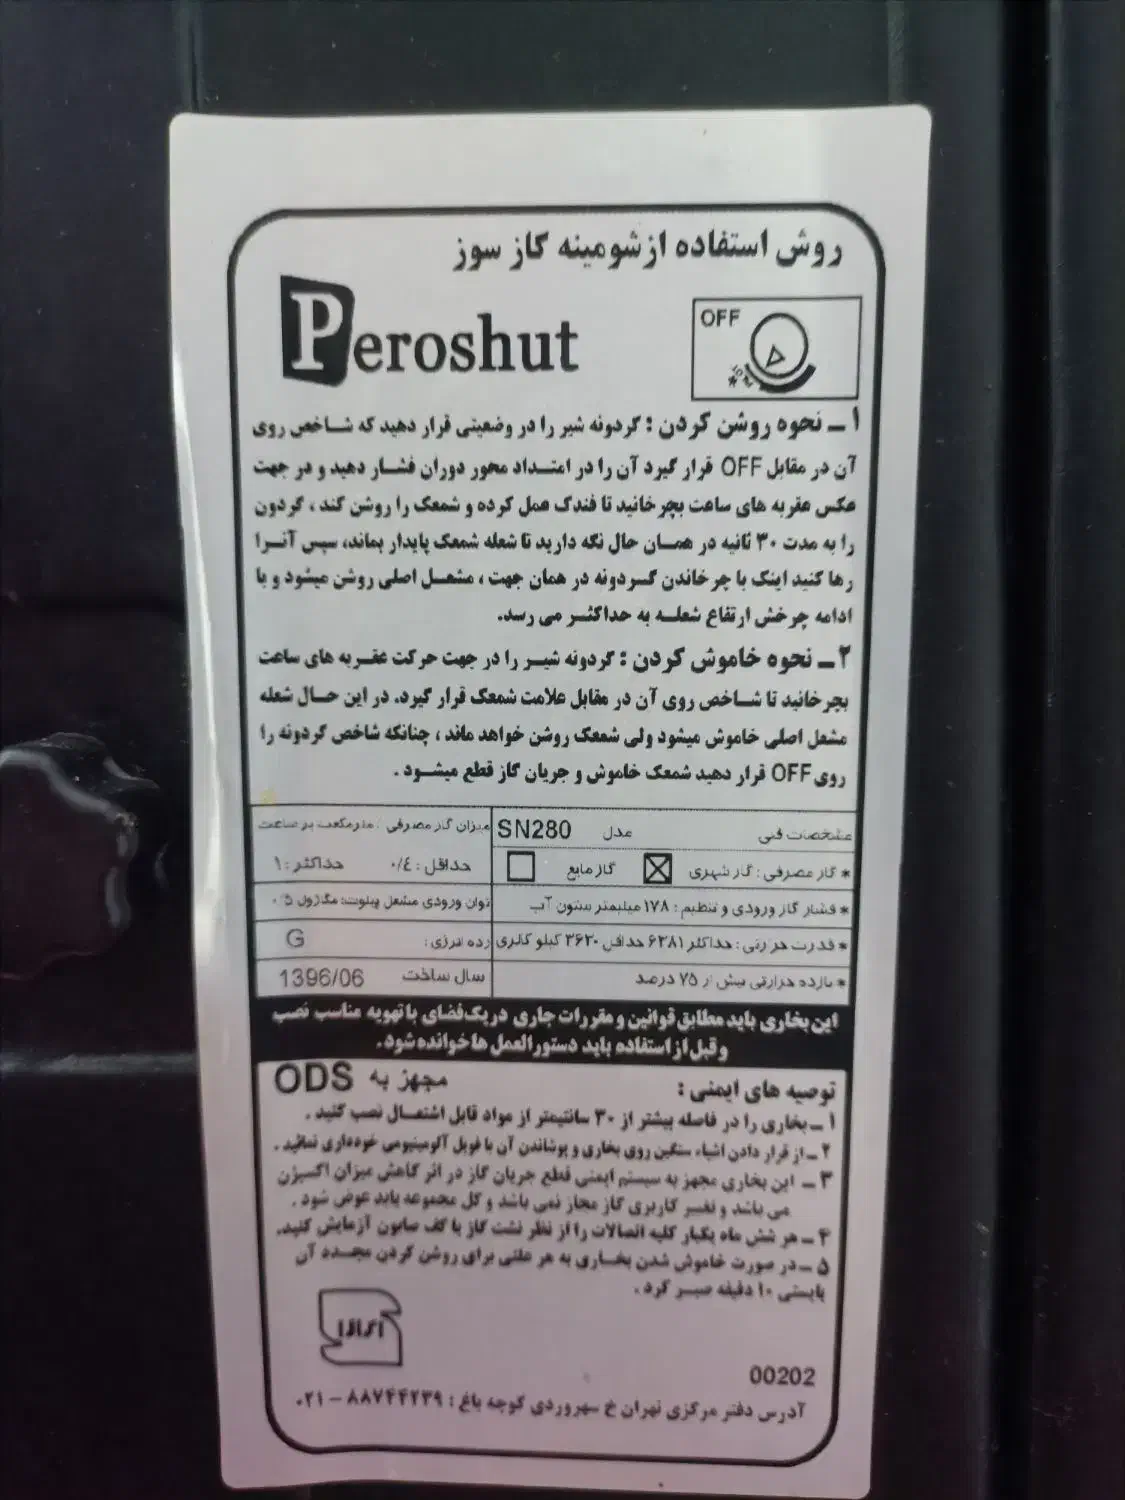 روش استفاده از شومینه گاز سوز
Peroshut
OFF
۱ ـ نحوه روشن کردن : گردونه شیر را در وضعیتی قرار دهید که شاخص روی
آن در مقابل OFF قرار گیرد آن را در امتداد محور دوران فشار دهید و در جهت
عکس عقربه های ساعت بچرخانید تا فندک عمل کرده و شمعک را روشن کند ، گردون
را به مدت ۳۰ ثانیه در همان حال نگه دارید تا شعله شمعک پایدار بماند، سپس آنرا
رها کنید اینک با چرخاندن گردونه در همان جهت ، مشعل اصلی روشن میشود و با
ادامه چرخش ارتفاع شعله به حداکثر می رسد.
۲ ـ نحوه خاموش کردن : گردونه شیر را در جهت حرکت عقربه های ساعت
بچرخانید تا شاخص روی آن در مقابل علامت شمعک قرار گیرد. در این حال شعله
مشعل اصلی خاموش میشود ولی شمعک روشن خواهد ماند ، چنانکه شاخص گردونه را
روی OFF قرار دهید شمعک خاموش و جریان گاز قطع میشود .
مشخصات فنی مدل SN280
میزان گاز مصرفی : مترمکعب بر ساعت
* گاز مصرفی : گاز شهری گاز مایع
حداقل : ۰/٤ حداکثر : ۱
* فشار گاز ورودی و تنظیم : ۱۷۸ میلیمتر ستون آب
توان ورودی مشعل پیلوت: مگاژول ۰/۵
* قدرت حرارتی : حداکثر ۶۲۸۱ حداقل ۳۶۳۰ کیلو کالری
رده انرژی : G
* بازده حرارتی بیش از ۷۵ درصد
سال ساخت 1396/06
این بخاری باید مطابق قوانین و مقررات جاری در یک فضای با تهویه مناسب نصب
و قبل از استفاده باید دستورالعمل ها خوانده شود .
توصیه های ایمنی : مجهز به ODS
۱ ـ بخاری را در فاصله بیشتر از ۳۰ سانتیمتر از مواد قابل اشتعال نصب کنید .
۲ ـ از قرار دادن اشیاء سنگین روی بخاری و پوشاندن آن با فویل آلومینیومی خودداری نمائید .
۳ ـ این بخاری مجهز به سیستم ایمنی قطع جریان گاز در اثر کاهش میزان اکسیژن
می باشد و تغییر کاربری گاز مجاز نمی باشد و کل مجموعه باید عوض شود .
۴ ـ هر شش ماه یکبار کلیه اتصالات را از نظر نشت گاز با کف صابون آزمایش کنید.
۵ ـ در صورت خاموش شدن بخاری به هر علتی برای روشن کردن مجدد آن
بایستی ۱۰ دقیقه صبر کرد .
00202
آدرس دفتر مرکزی تهران خ سهروردی کوچه باغ : ۸۸۷۴۴۲۳۹ – ۰۲۱